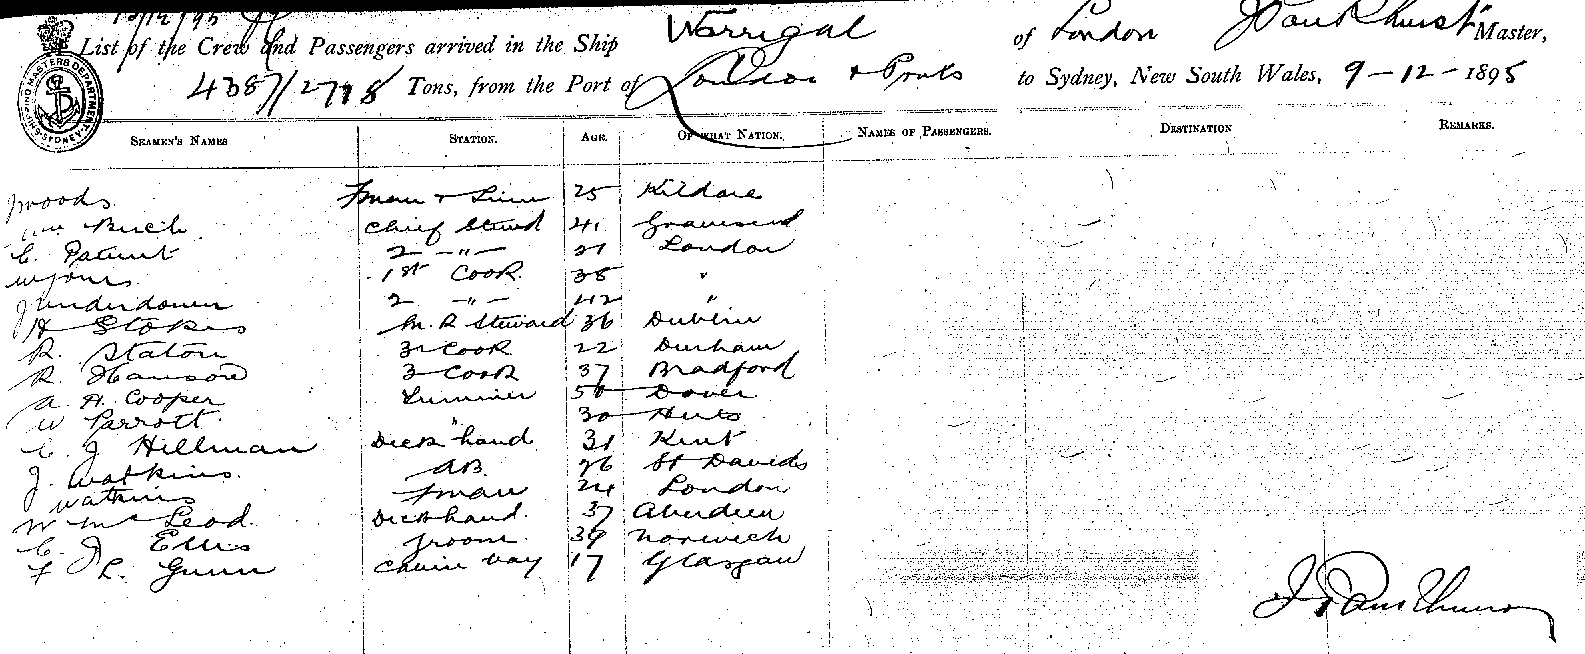 13/12/95
List of the Crew and Passengers arrived in the Ship Warrigal of London J Pankhurst Master,
4387/2718 Tons, from the Port of London & Ports to Sydney, New South Wales, 9-12-1895
SEAMEN'S NAMES STATION. AGE. OF WHAT NATION. NAMES OF PASSENGERS. DESTINATION REMARKS.
J Woods Fman & Trim 25 Kildare
Wm Birch Chief Stewd 41 Gravesend
C. Patient 2 -"- 27 London
W Jones 1st Cook 38 "
J Underdown 2 -"- 42 "
H Stokes M. R Steward 36 Dublin
R. Staton 3 Cook 22 Durham
R. Hanson 3 Cook 37 Bradford
A. H. Cooper Trimmer 50 Dover
W Parrott " 30 Herts
C. J Hillman Deck hand 31 Kent
J. Watkins. AB. 26 St Davids
Watkins Fman 24 London
W McLeod. Deck hand. 37 Aberdeen
C. J Ellis groom. 39 Norwich
F L. Gunn Cabin boy 17 Glasgow
J Pankhurst